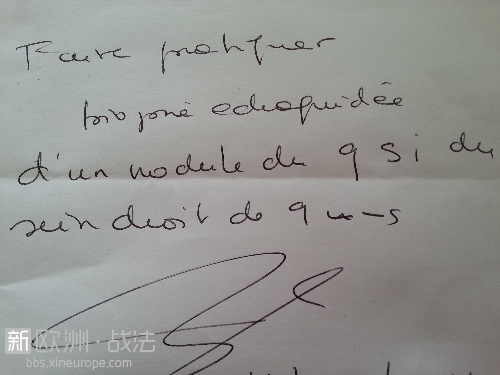 Faire pratiquer
biopsie échoguidée
d'un nodule du q s i du
sein droit de 9 mms
新欧洲·战法
bbs.xineurope.com